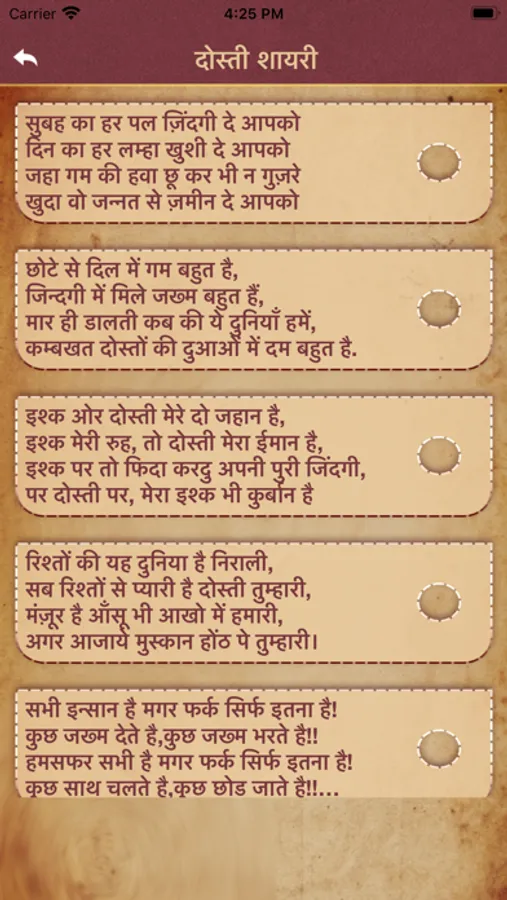 Carrier 4:25 PM
दोस्ती शायरी
सुबह का हर पल ज़िंदगी दे आपको
दिन का हर लम्हा खुशी दे आपको
जहा गम की हवा छू कर भी न गुज़रे
खुदा वो जन्नत से ज़मीन दे आपको
छोटे से दिल में गम बहुत है,
जिन्दगी में मिले जख्म बहुत हैं,
मार ही डालती कब की ये दुनियाँ हमें,
कम्बखत दोस्तों की दुआओं में दम बहुत है.
इश्क ओर दोस्ती मेरे दो जहान है,
इश्क मेरी रुह, तो दोस्ती मेरा ईमान है,
इश्क पर तो फिदा करदु अपनी पुरी जिंदगी,
पर दोस्ती पर, मेरा इश्क भी कुर्बान है
रिश्तों की यह दुनिया है निराली,
सब रिश्तों से प्यारी है दोस्ती तुम्हारी,
मंज़ूर है आँसू भी आखो में हमारी,
अगर आजाये मुस्कान होंठ पे तुम्हारी।
सभी इन्सान है मगर फर्क सिर्फ इतना है!
कुछ जख्म देते है,कुछ जख्म भरते है!!
हमसफर सभी है मगर फर्क सिर्फ इतना है!
कुछ साथ चलते है,कुछ छोड जाते है!!...